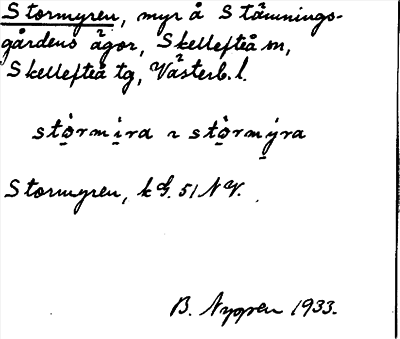 Stormyren, myr å Stämnings-
gårdens ägor, Skellefteå sn,
Skellefteå tg, Västerb. l.
stòrmira ~ stòrmýra
Stormyren, k bl. 51 NV.
B. Nygren 1933.